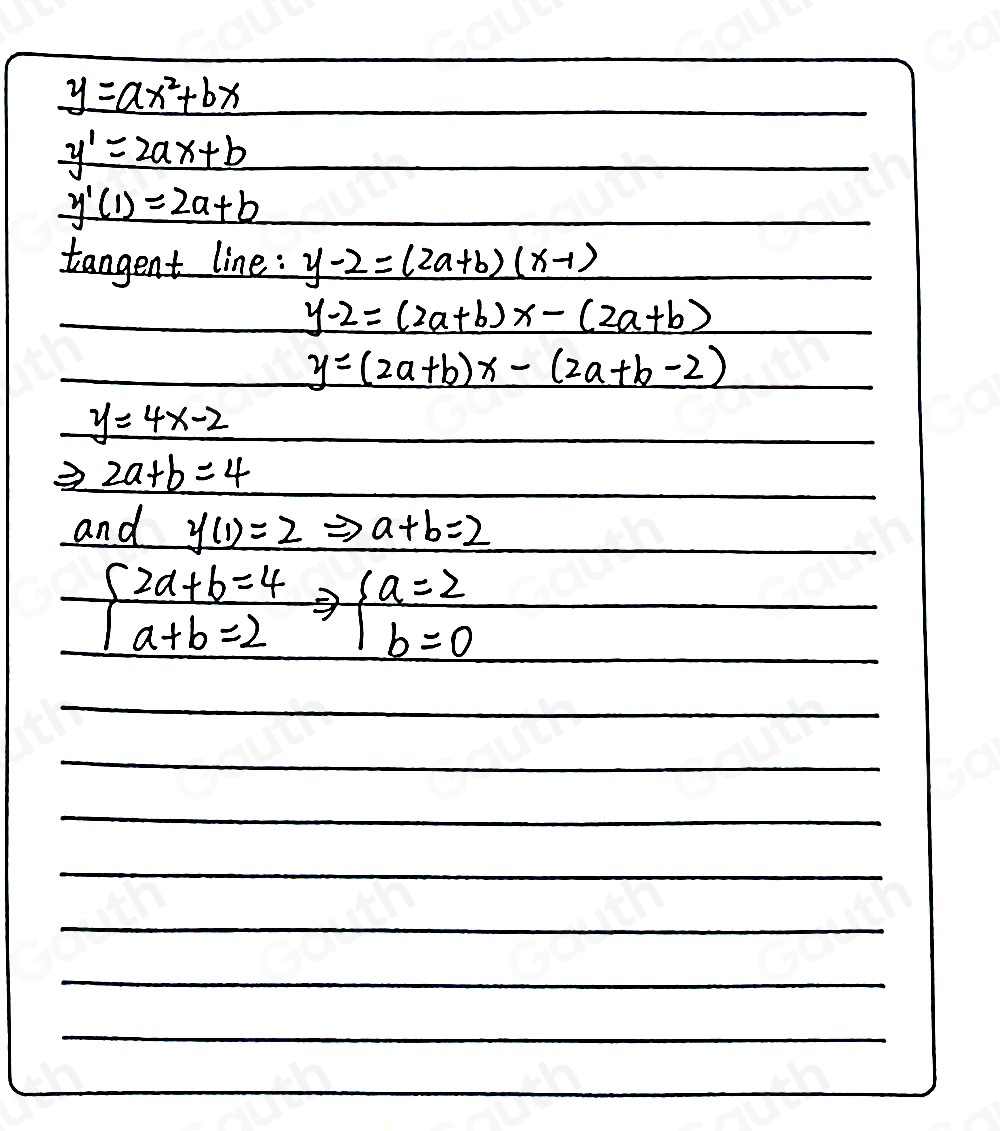 y=ax²+bx
y'=2ax+b
y'(1)=2a+b
tangent line: y-2=(2a+b)(x-1)
y-2=(2a+b)x-(2a+b)
y=(2a+b)x-(2a+b-2)
y=4x-2
⇒ 2a+b=4
and y(1)=2 ⇒ a+b=2
{2a+b=4 ⇒ {a=2
a+b=2 b=0
Gauth